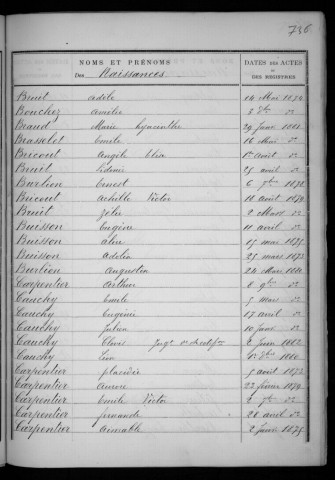 736
NOMS ET PRÉNOMS
Des Naissances
DATES DES ACTES
ET
DES REGISTRES
Benit adèle
Bouchez amélie
Biaud Marie hyacinthe
Brasselet Emile 16 Mai do
Bucourt Angèle Elisa avril do
Benit 25 avril do
Burlion Ernest 6 7bre
Bucourt Achille Victor 10 aout
Benit Zélie 2 Mars do
Buisson Eugène 11 avril do
Buisson aline 15 mai 1875
Buisson Adélia 25 mars
Burlion Augustin 24 Mai
Carpentier Arthur 6 9bre do
Cauchy Emile 5 Mars do
Cauchy Eugénie 17 avril do
Cauchy Julien 10 Juin do
Cauchy Clovis 2 Juin 1862
Cauchy Léon 1er Xbre 1860
Carpentier placidie 5 avril
Carpentier Aurore 22 février 1874
Carpentier Emile Victor 2 7bre do
Carpentier fernande 26 avril do
Carpentier aimable 2 Janv 1875